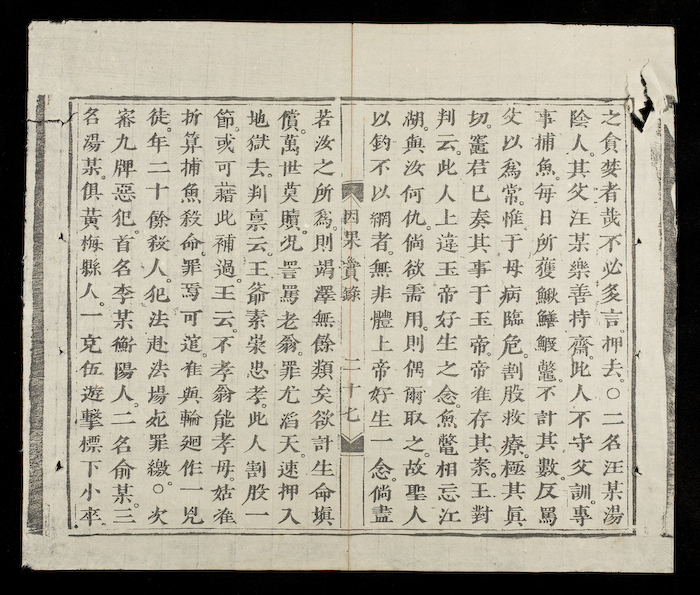 之貪婪者哉不必多言押去。〇二名汪某湯
陰人其父汪某樂善持齋此人不守父訓專
事捕魚每日所獲鰍鱔鰕鼈不計其數反罵
父以爲常惟于母病臨危割股救療極其眞
切竈君已奏其事于玉帝帝准存其案王對
判云此人上違玉帝好生之念魚鼈相忘江
湖與汝何仇倘欲需用則偶爾取之故聖人
以釣不以網者無非體上帝好生一念倘盡
因果實錄 二十七
若汝之所爲則竭澤無餘類矣欲計生命塡
償萬世莫贖况詈罵老翁罪尤滔天速押入
地獄去判禀云王爺素崇忠孝此人割股一
節或可藉此補過王云不孝翁能孝母姑准
折算捕魚殺命罪焉可逭准與輪廻作一兇
徒年二十餘殺人犯法赴法場死罪繳〇次
審九牌惡犯首名李某衡陽人二名俞某三
名湯某俱黃梅縣人一充伍遊擊標下小卒